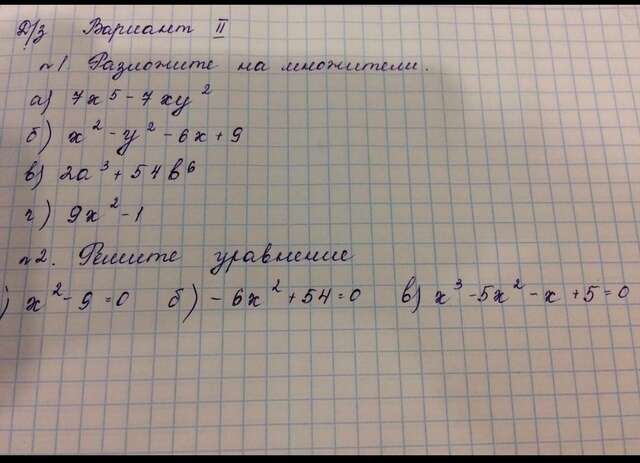 Д/з Вариант II
п1 Разложите на множители.
а) 7x⁵ - 7xy²
б) x² - y² - 6x + 9
в) 2a³ + 54b⁶
г) 9x² - 1
п2. Решите уравнение
) x² - 9 = 0 б) - 6x² + 54 = 0 в) x³ - 5x² - x + 5 = 0